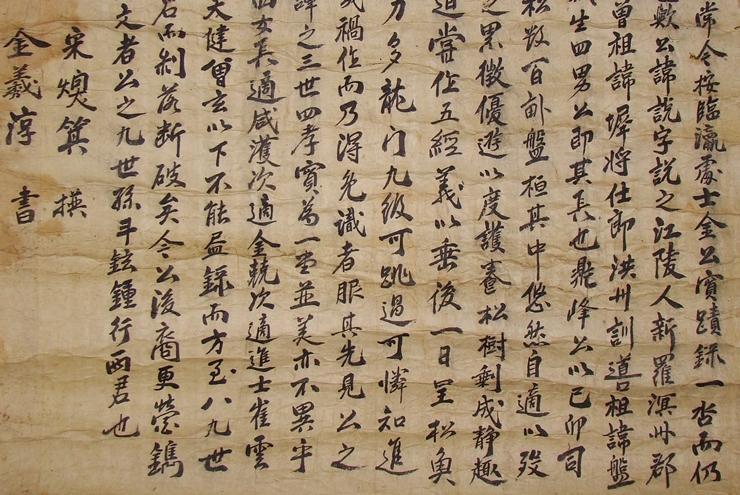 常令按臨瀛處士金公實蹟錄一呇而仍
歎公諱說字說之江陵人新羅溟州郡
曾祖諱墀將仕郎洪州訓導祖諱盤
生四男公即其長也鼎峰公以己卯司
松數百畝盤桓其中悠然自適以歿
之累徵優遊以度護養松樹剩成靜趣
嘗作五經義以垂後一日呈松奧
刀多龍门九級可跳過可憐知進
禍作而乃得免識者服其先見公之
諱之三世四孝實爲一堂並美亦不異乎
四女長適咸濩次適金兢次適進士崔雲
大健曾玄以下不能盡錄而方至八九世
若而刹落斷破矣今公後裔更營鐫
文者公之九世孫斗鉉鍾行兩君也
宋煥箕 撰
金羲淳 書